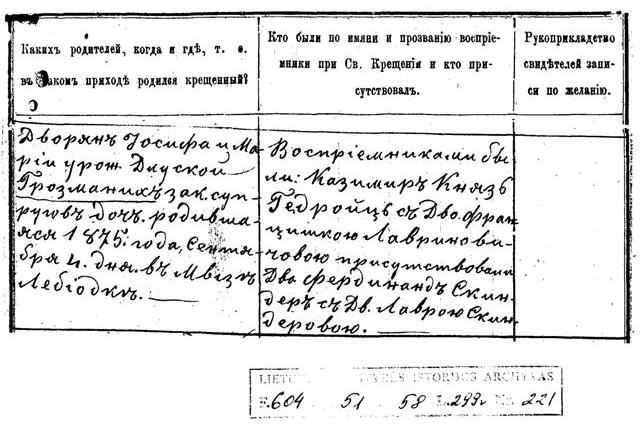 Какихъ родителей, когда и гдѣ, т. е.
въ какомъ приходѣ родился крещенный?
Кто были по имяни и прозванію воспріе-
мники при Св. Крещенія и кто при-
сутствовалъ.
Рукоприкладство
свидѣтелей запи-
си по желанію.
Дворянъ Іосифа и Ма-
ріи урож. Длуской
Грозманихъ зак. суп-
руговъ дочь родивша-
яся 1875 года, Сентя-
бря 4. дня въ
Лебіодкѣ.
Воспріемниками бы-
ли: Казимиръ Князь
Гедройцъ съ Дво. Фран-
цишкою Лавринови-
човою присутствовали
Дво. Фердинандъ Скин-
деръ съ Дв. Лаврою Скин-
деровою.
ISTORIJOS ARCHYVAS
F. 604 51 58 L. 299v Nr. 221